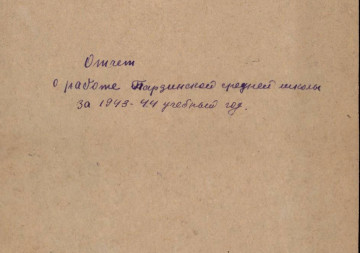 Отчет
о работе Парзинской средней школы
за 1943-44 учебный год.